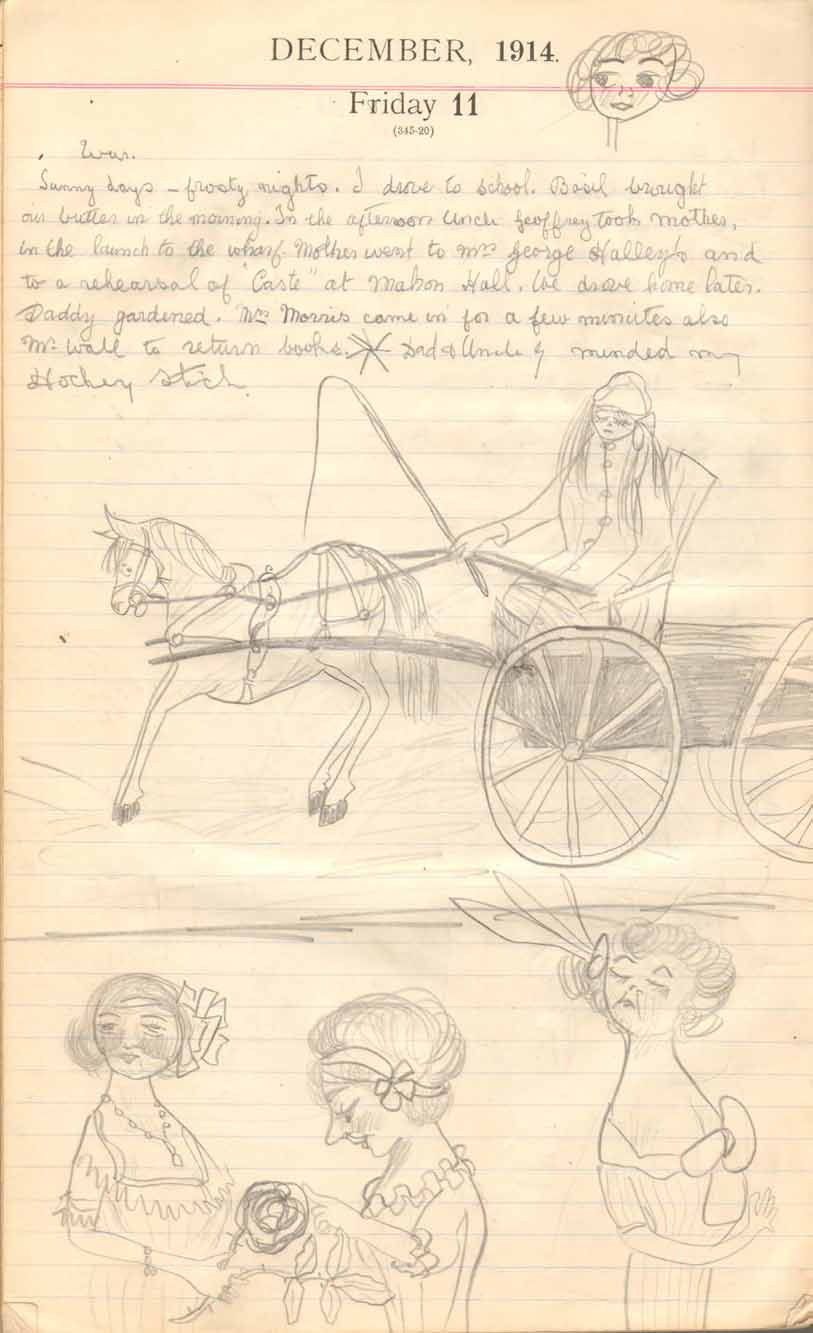 DECEMBER, 1914.
Friday 11
(345-20)
War.
Sunny days – frosty nights. I drove to school. Basil brought
our butter in the morning. In the afternoon Uncle Geoffrey took Mother,
in the launch to the wharf. Mother went to Mrs George Halley's and
to a rehearsal of "Caste" at Mahon Hall. We drove home later.
Daddy gardened. Mrs Morris came in for a few minutes also
Mr Wall to return books. Dad & Uncle G mended my
Hockey Stick.